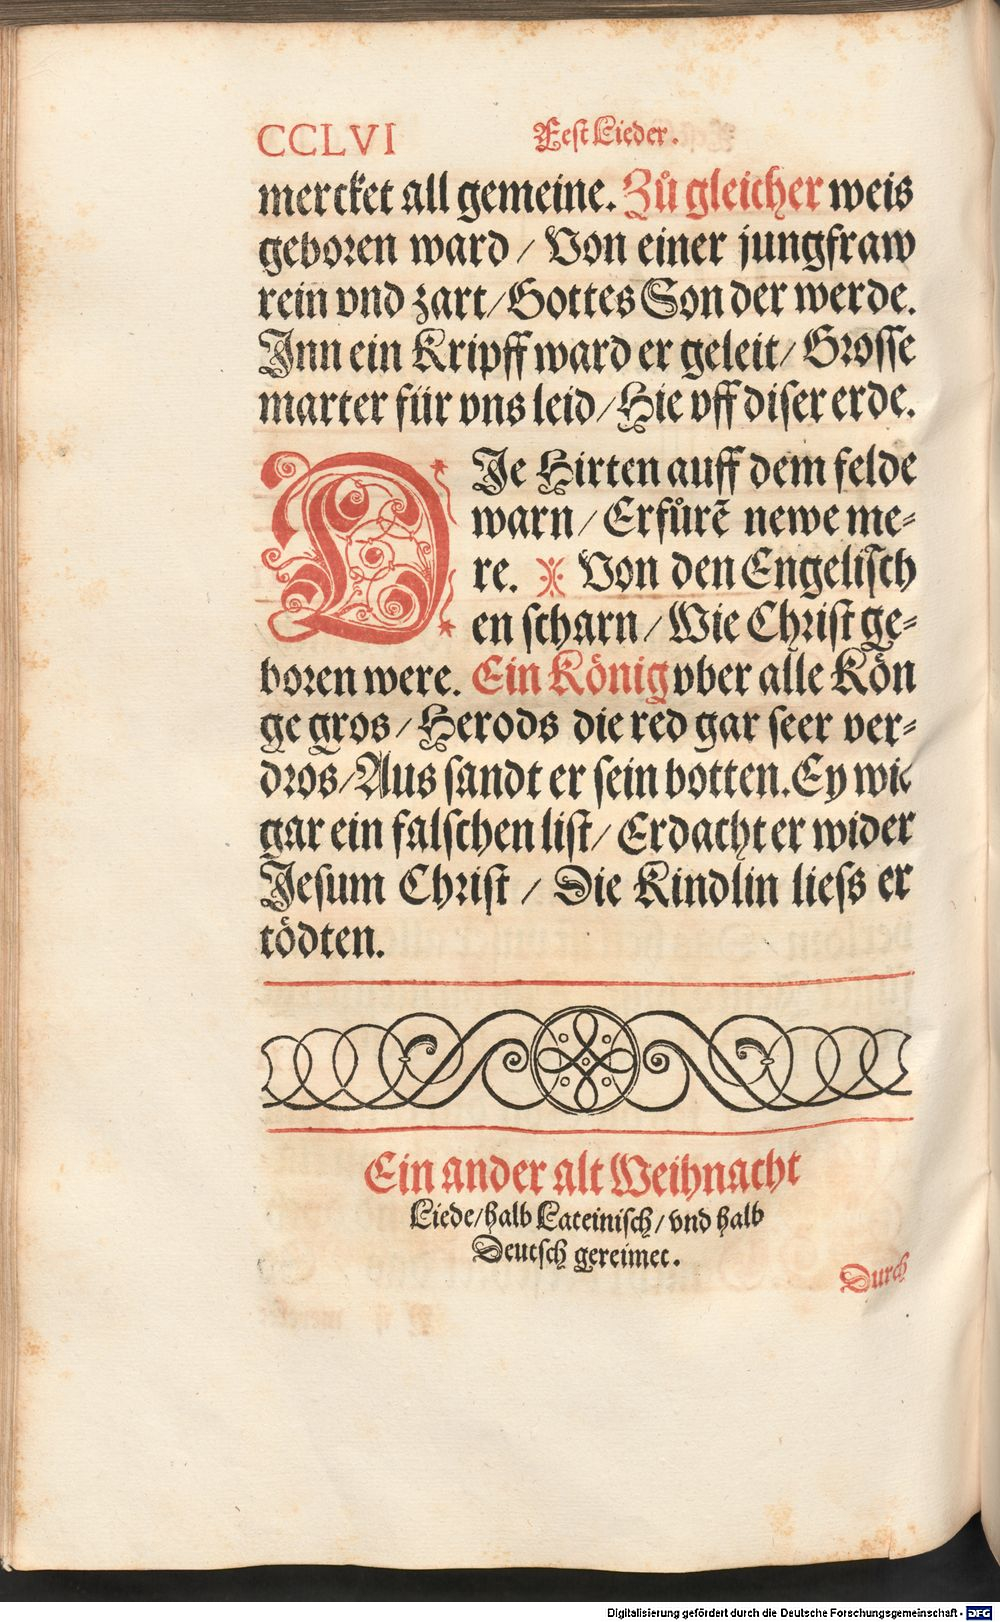 CCLVI Fest Lieder.
mercket all gemeine. Zů gleicher weis
geboren ward / Von einer jungfraw
rein vnd zart / Gottes Son der werde.
Inn ein Kripff ward er geleit / Grosse
marter für vns leid / Hie vff diser erde.
DIe Hirten auff dem felde
warn / Erfůrẽ newe me⸗
re. Von den Engelisch
en scharn / Wie Christ ge⸗
boren were. Ein König vber alle Kön
ge gros / Herods die red gar seer ver⸗
dros / Aus sandt er sein botten. Ey wie
gar ein falschen list / Erdacht er wider
Jesum Christ / Die Kindlin liess er
tödten.
Ein ander alt Weihnacht
Liede / halb Lateinisch / vnd halb
Deutsch gereimet.
Durch
Digitalisierung gefördert durch die Deutsche Forschungsgemeinschaft - DFG